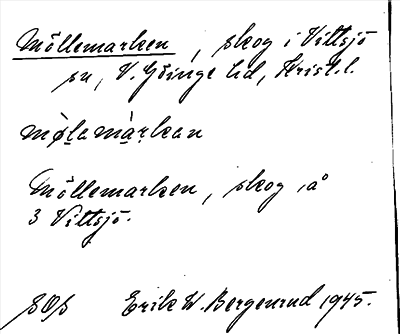 Möllemarken, skog i Vittsjö
sn, V. Göinge hd, Krist. l.
mø̀lamàrkan
Möllemarken, skog, å
3 Vittsjö.
SOS Erik W. Bergenrud 1945.